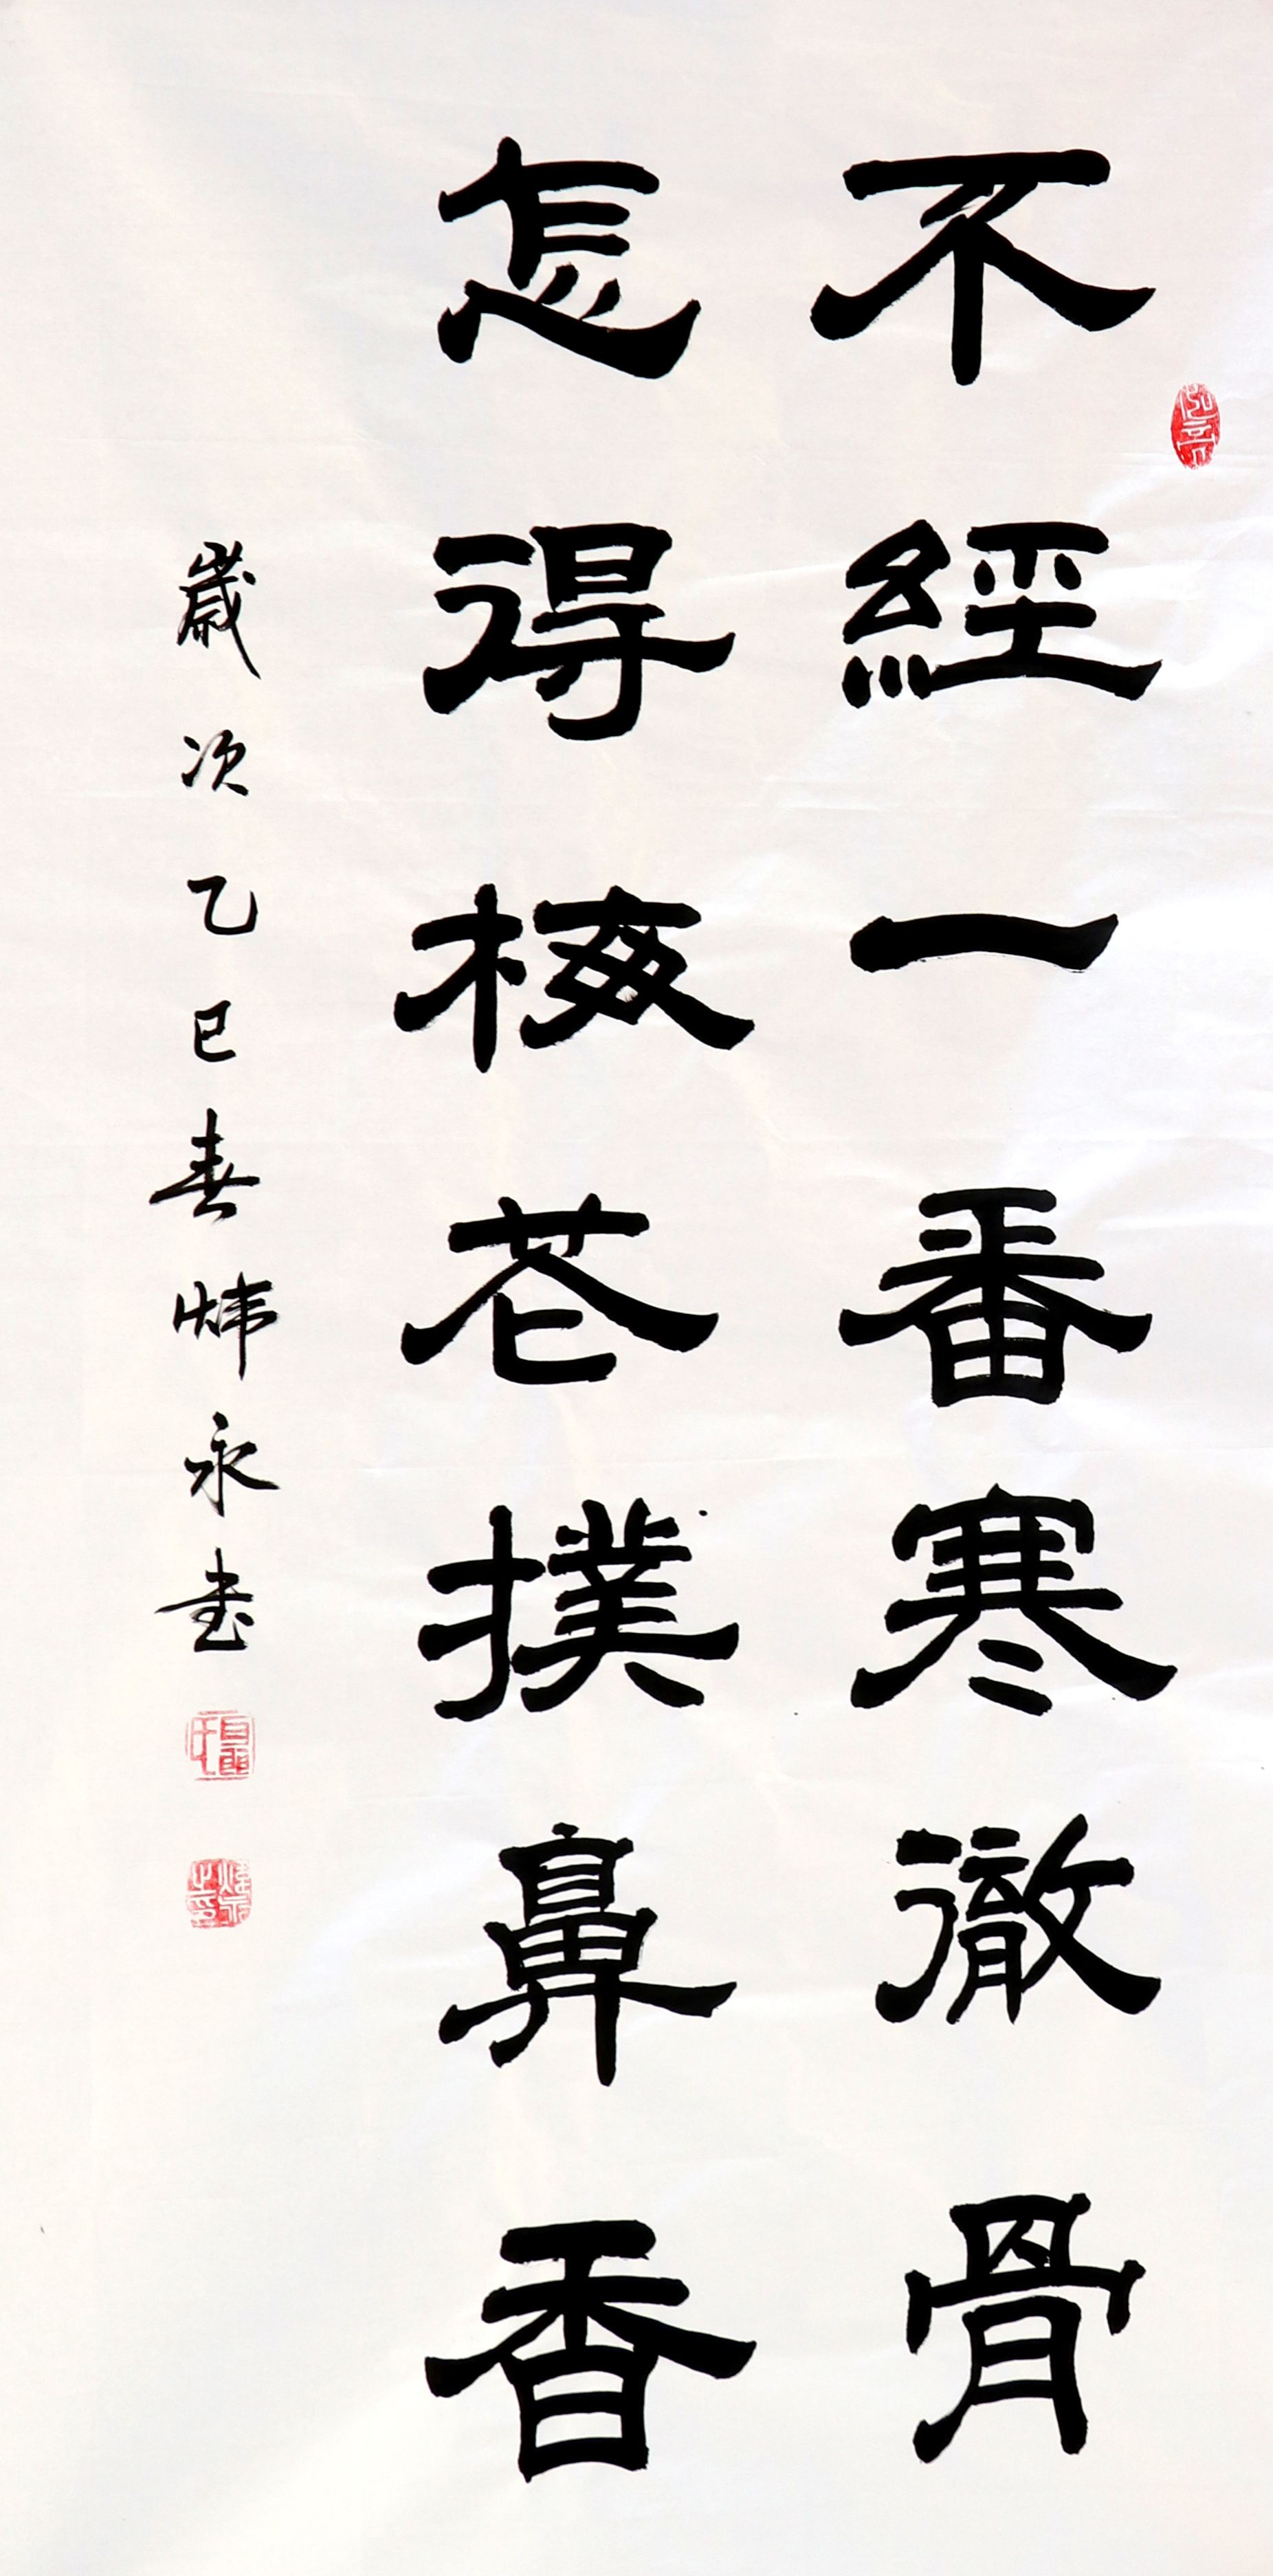 不經一番寒徹骨
怎得梅花撲鼻香
歲次乙巳春煒永书